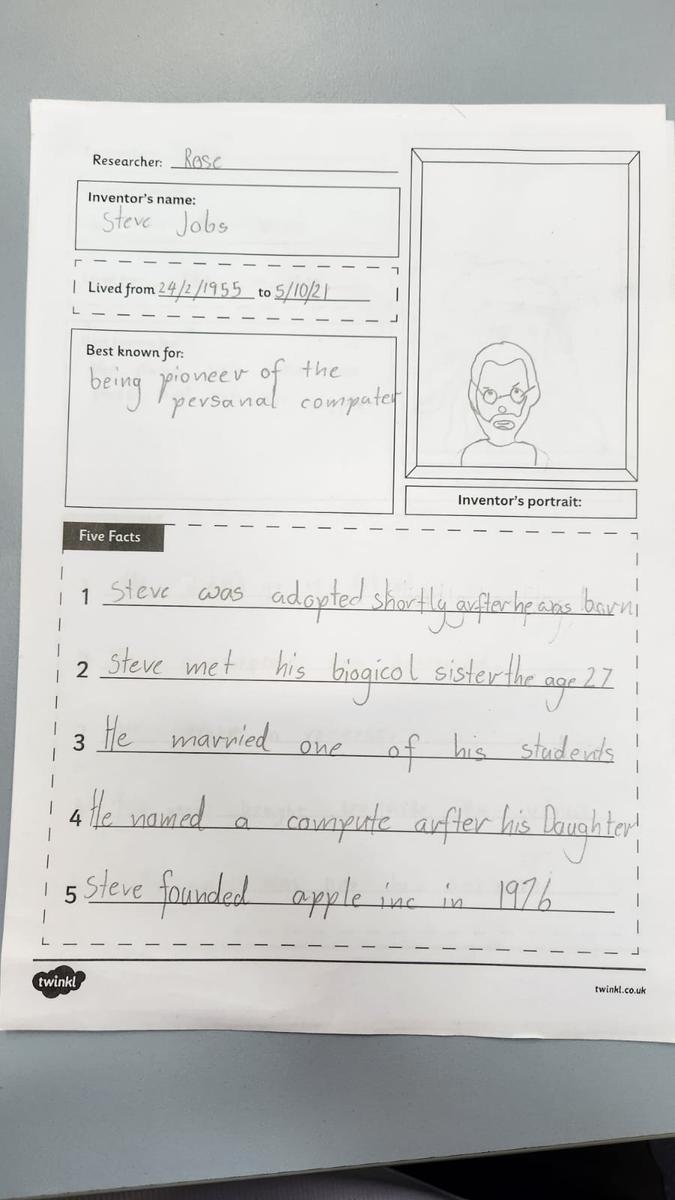 Researcher: Rose
Inventor's name:
Steve Jobs
Lived from 24/2/1955 to 5/10/21
Best known for:
being pioneer of the
persanal computer
Inventor's portrait:
Five Facts
1 Steve was adopted shortly arfter he was born
2 Steve met his biogicol sister the age 27
3 He married one of his students
4 He named a compute arfter his Daughter
5 Steve founded apple inc in 1976
twinkl
twinkl.co.uk